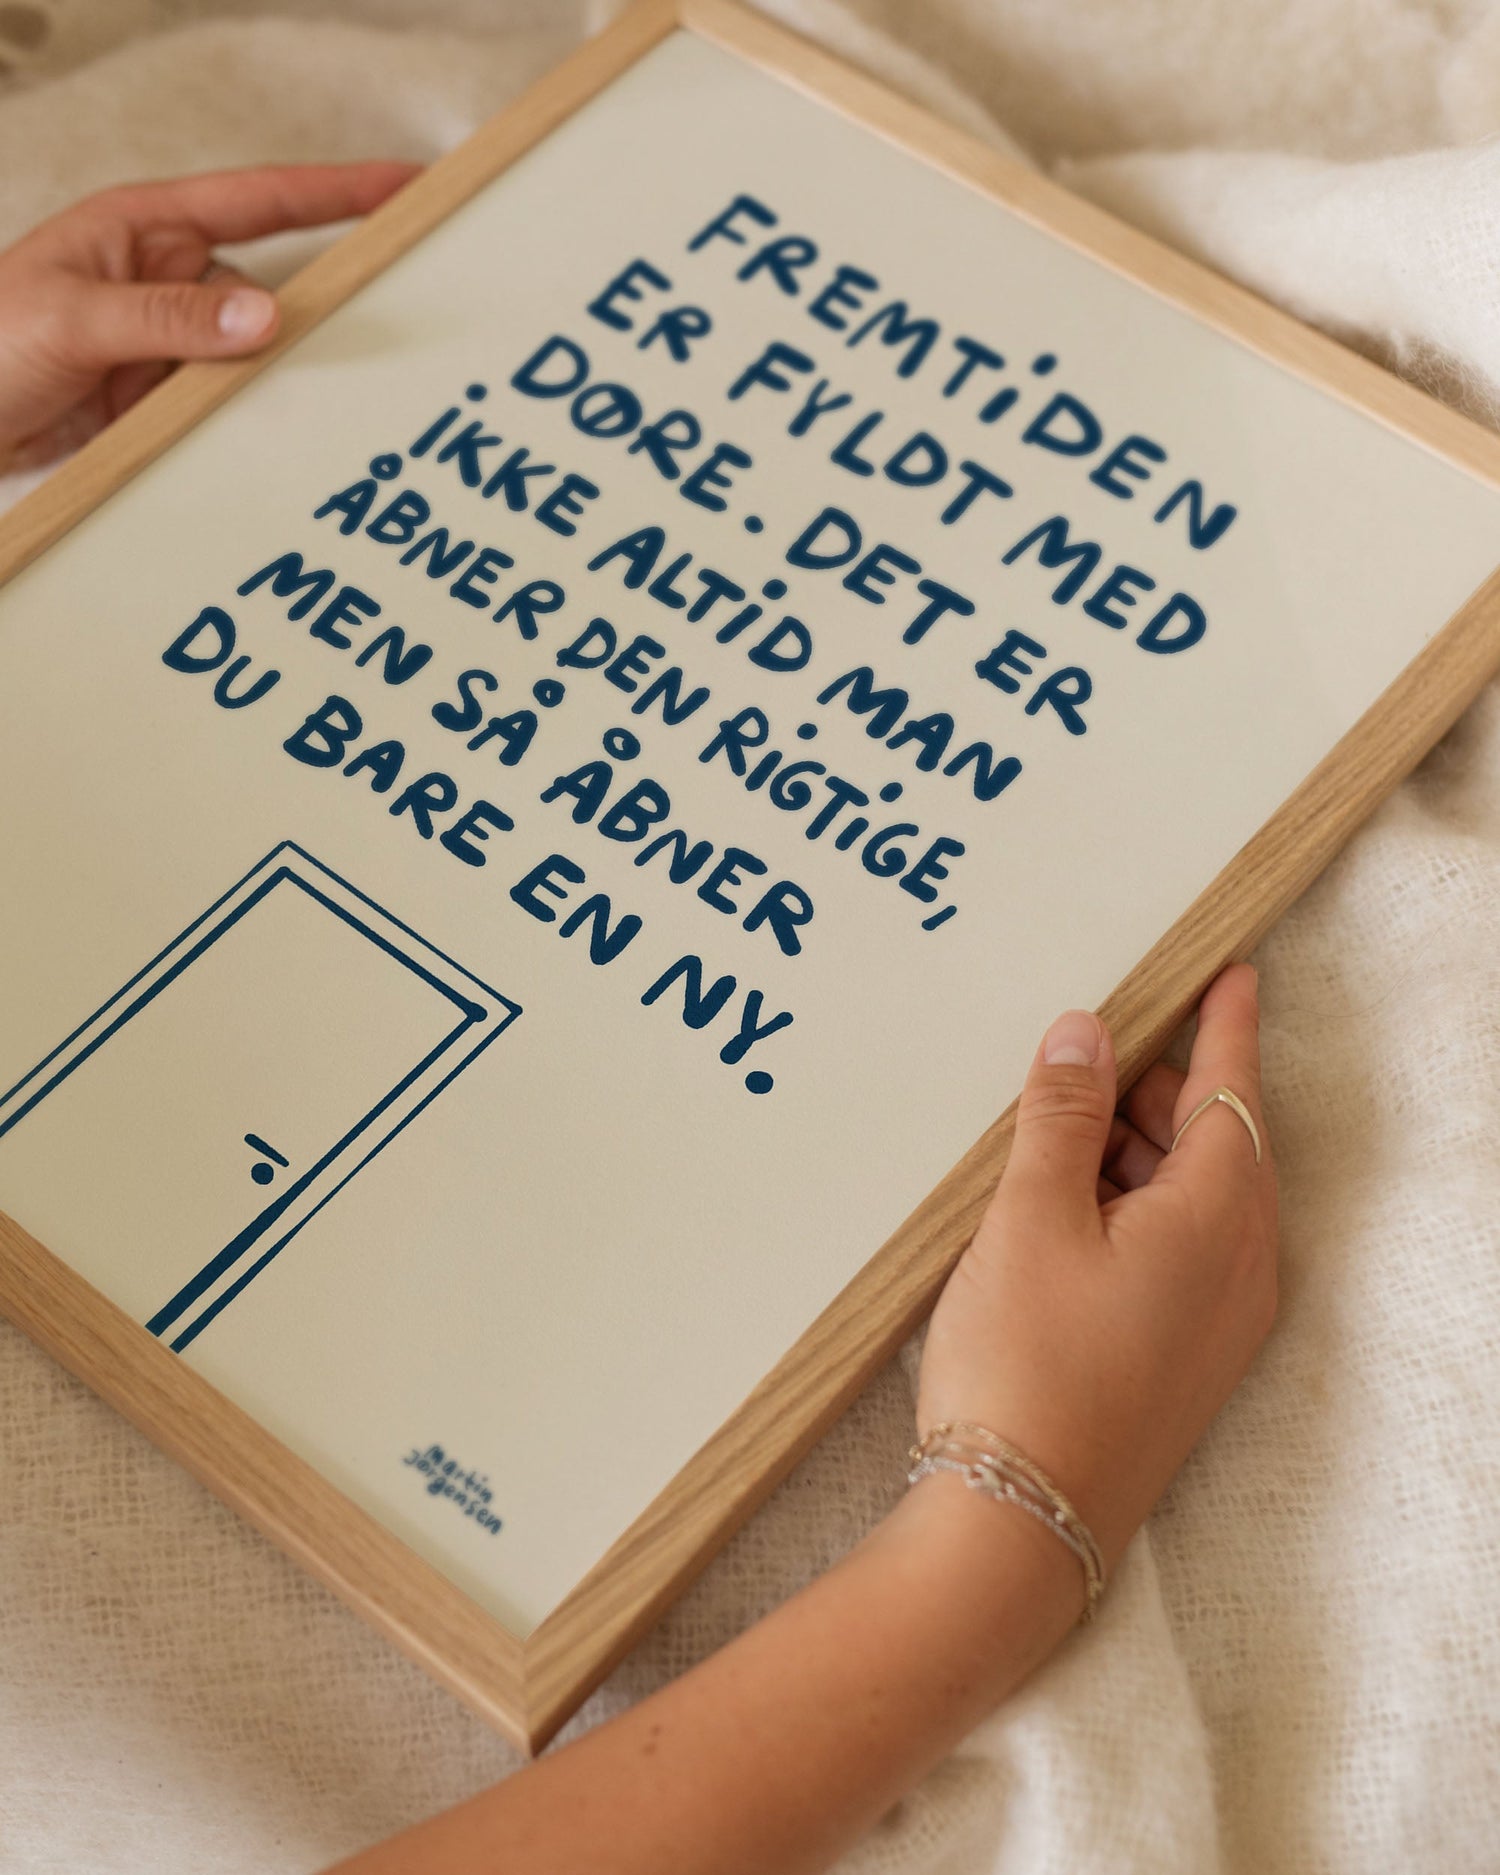 FREMTiDEN
ER FYLDT MED
DØRE. DET ER
iKKE ALTiD MAN
ÅBNER DEN RiGTiGE,
MEN SÅ ÅBNER
DU BARE EN NY.
martin
Jørgensen